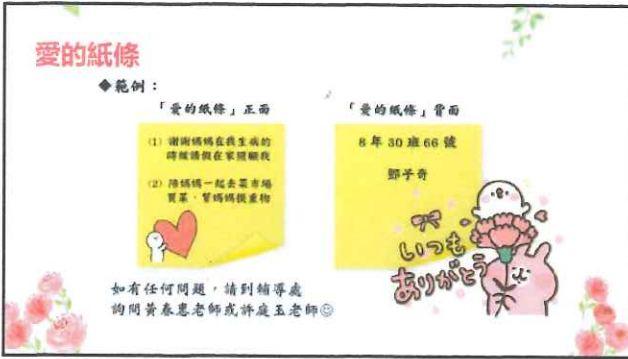 愛的紙條
◆範例：
「愛的紙條」正面
(1) 謝謝媽媽在我生病的
時候請假在家照顧我
(2) 陪媽媽一起去菜市場
買菜，幫媽媽提重物
「愛的紙條」背面
8 年 30 班 66 號
鄧子奇
いつも
ありがとう
如有任何問題，請到輔導處
詢問黃春惠老師或許庭玉老師☺